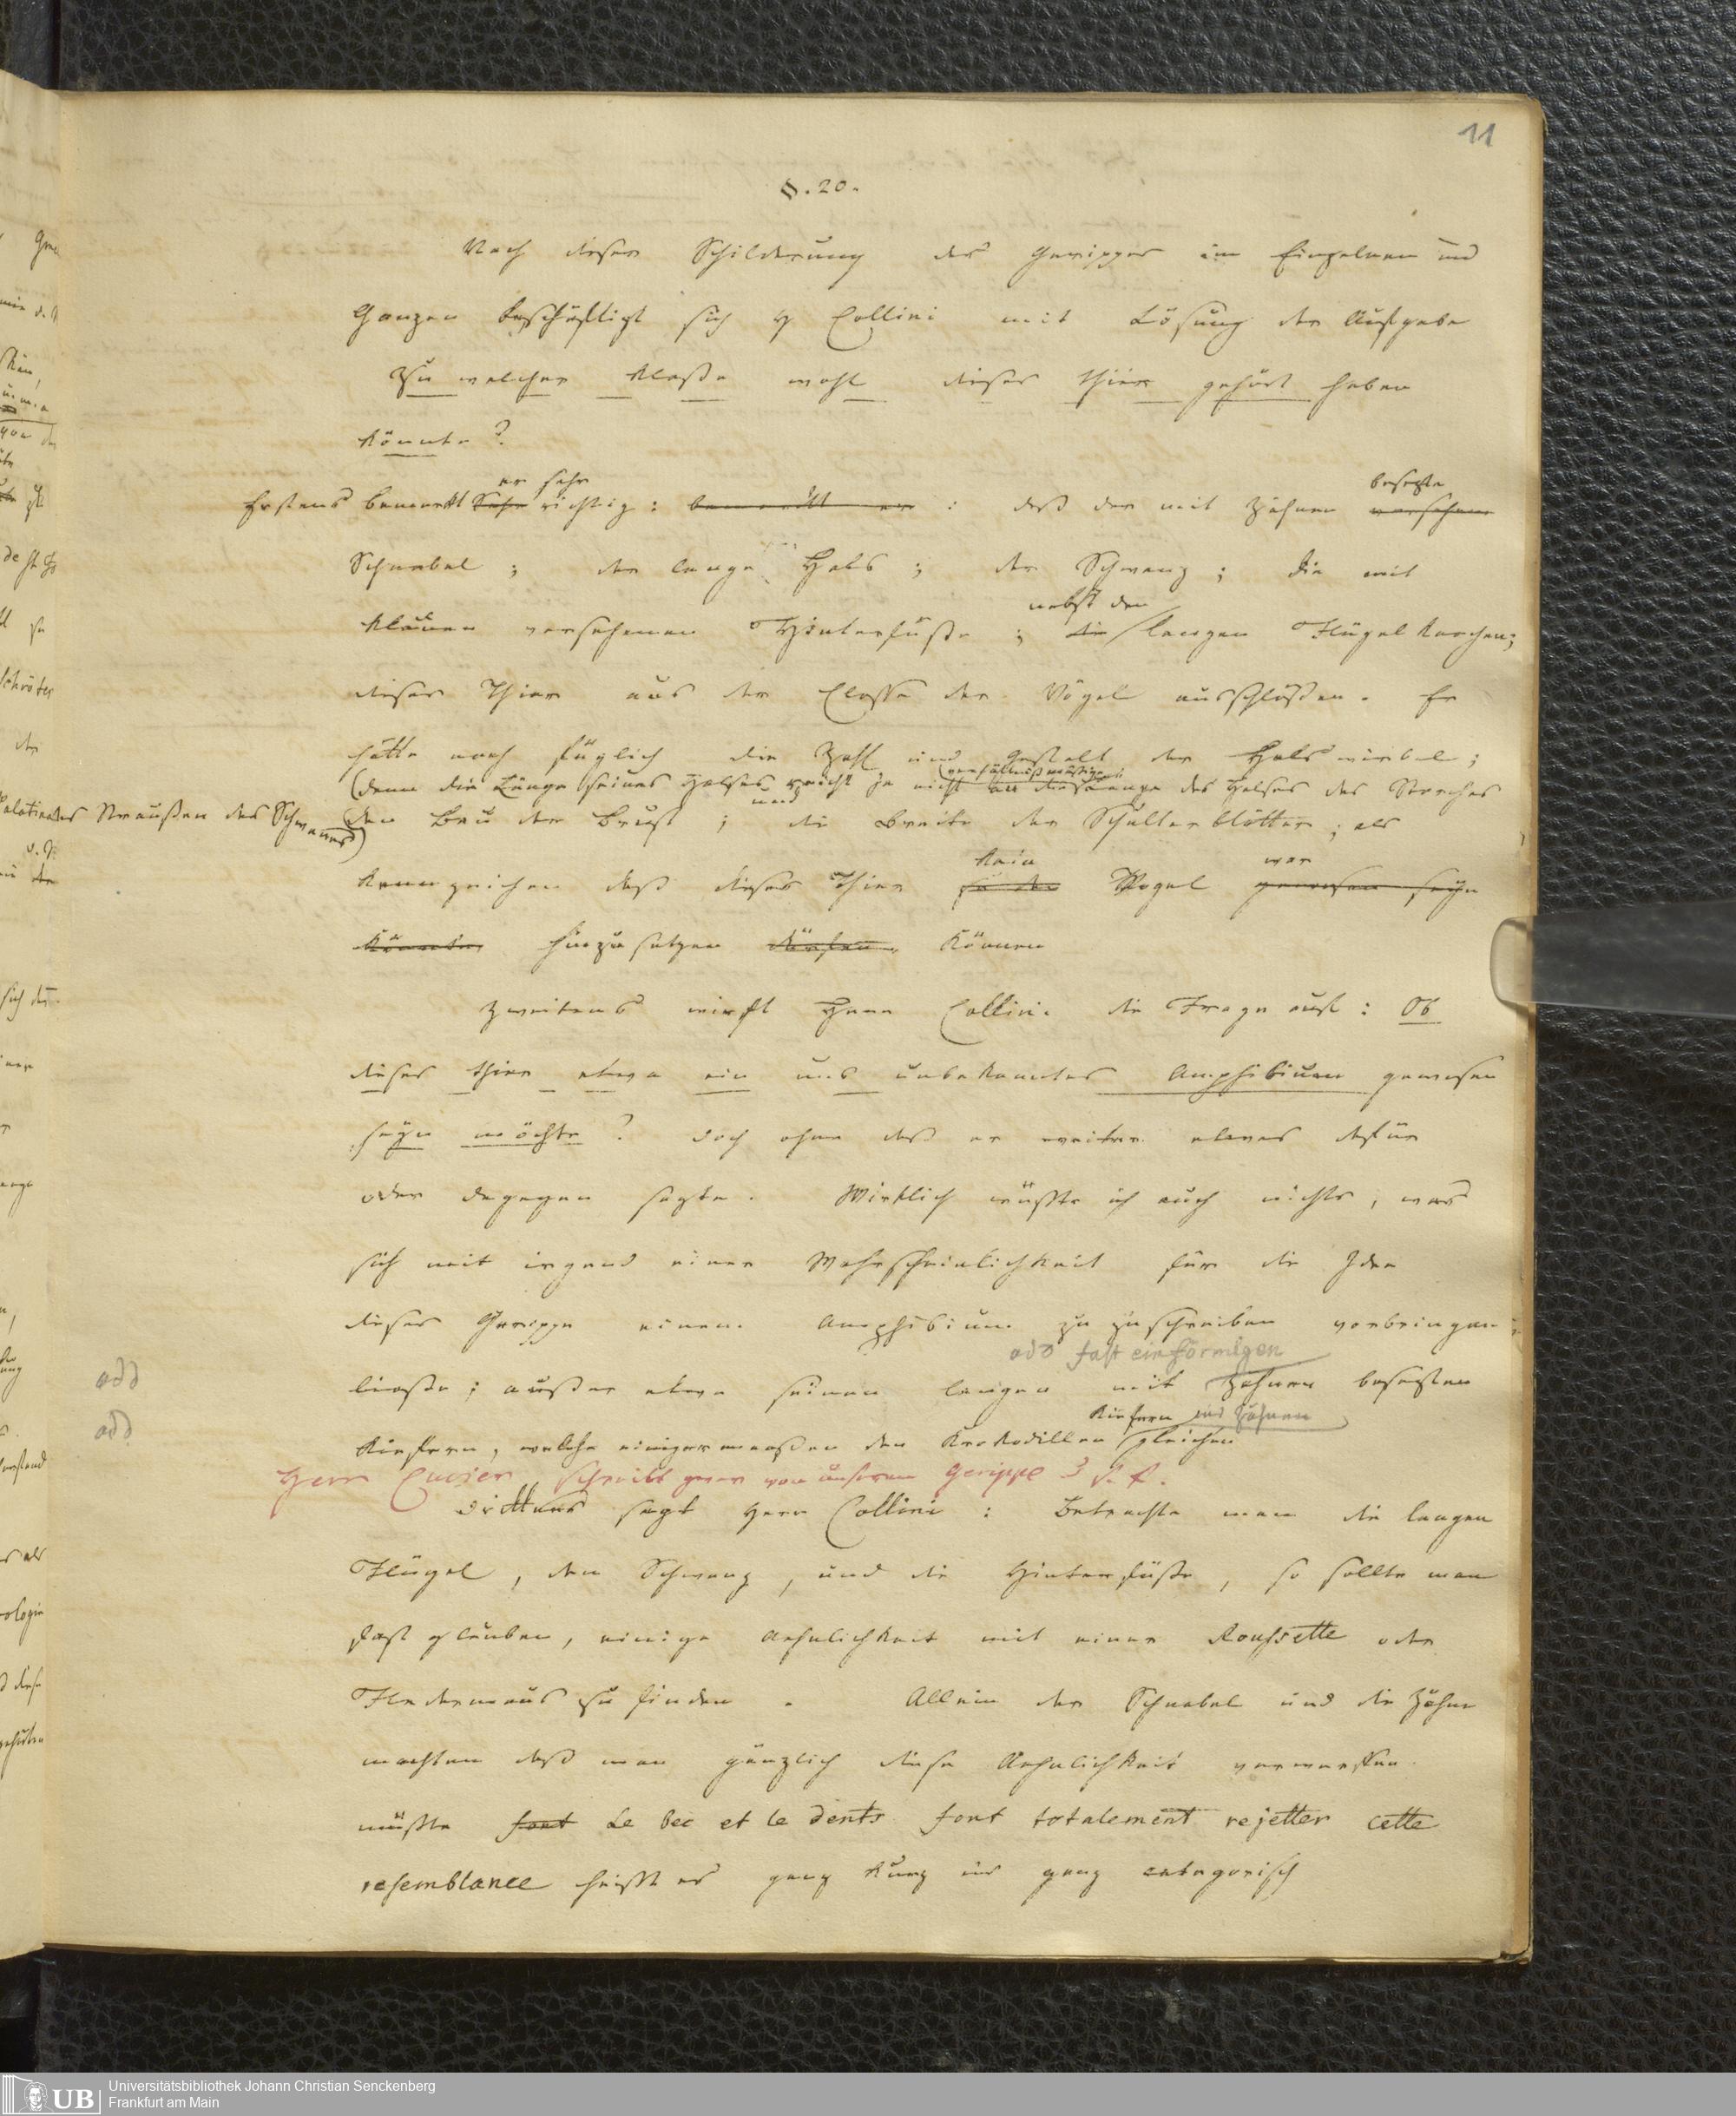 11
§. 20.
Nach dieser Schilderung des Gerippes im Einzelnen und
Ganzen beschäftigt sich H Collini mit Lösung der Aufgabe
zu welcher Klaße wohl dieses Thier gehört haben
könnte?
er sehr besezte
Erstens bemerkt Sehr richtig: bemerkt er : daß der mit Zähnen versehene
Schnabel; der lange Hals; der Schwanz; die mit
nebst den
Klauen versehenen Hinterfüße; die langen Flügelknochen;
dieses Thier aus der Classe der Vögel ausschlößen. Er
hätte noch füglich die Zahl und Gestalt der Halswirbel;
(verhältnißmäßige
(denn die Länge seines Halses reicht ja nicht an die Länge des Halses des Storches
und
des Straußen des Schwanes)
den Bau der Brust; die Breite der Schulterblätter; als
kein war
Kennzeichen daß dieses Thier Vogel gewesen seyn
könnte, hinzusetzen dürfen. können
Zweitens wirft Herr Collini die Frage auf: Ob
dieses Thier etwa ein uns unbekanntes Amphibium gewesen
seyn möchte? doch ohne daß er weiter etwas dafür
oder dagegen sagte. Wirklich wüßte ich auch nichts, was
sich mit irgend einer Wahrscheinlichkeit für die Idee
dieses Gerippe einem Amphibium zu zuschreiben vorbringen
add fast einförmigen
add ließe; außer etwa seinen langen mit Zähnen besezten
Kiefern und Zähnen
add Kiefern, welche einigermaaßen den Krokodillen gleichen
Herr Cuvier schreibt zwar von unserem Gerippe
Drittens sagt Herr Collini: Betrachte man die langen
Flügel, den Schwanz, und die Hinterfüße, so sollte man
fast glauben, einige Aehnlichkeit mit einer Roussette oder
Fledermaus zu finden. Allein der Schnabel und die Zähne
machten daß man gänzlich diese Aehnlichkeit verwerfen
müßte font Le bec et le dents font totalement rejetter cette
resemblance heißt es ganz kurz und ganz categorisch
UB Universitätsbibliothek Johann Christian Senckenberg
Frankfurt am Main